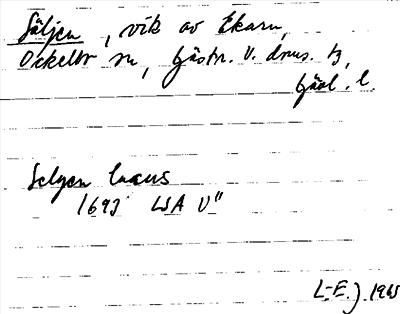 Säljen, vik av Ekaren,
Ockelbo sn, Gästr. V. doms. tz,
Gävl. l.
Selgen lacus
1693 LSA U"
L-E.J 1965